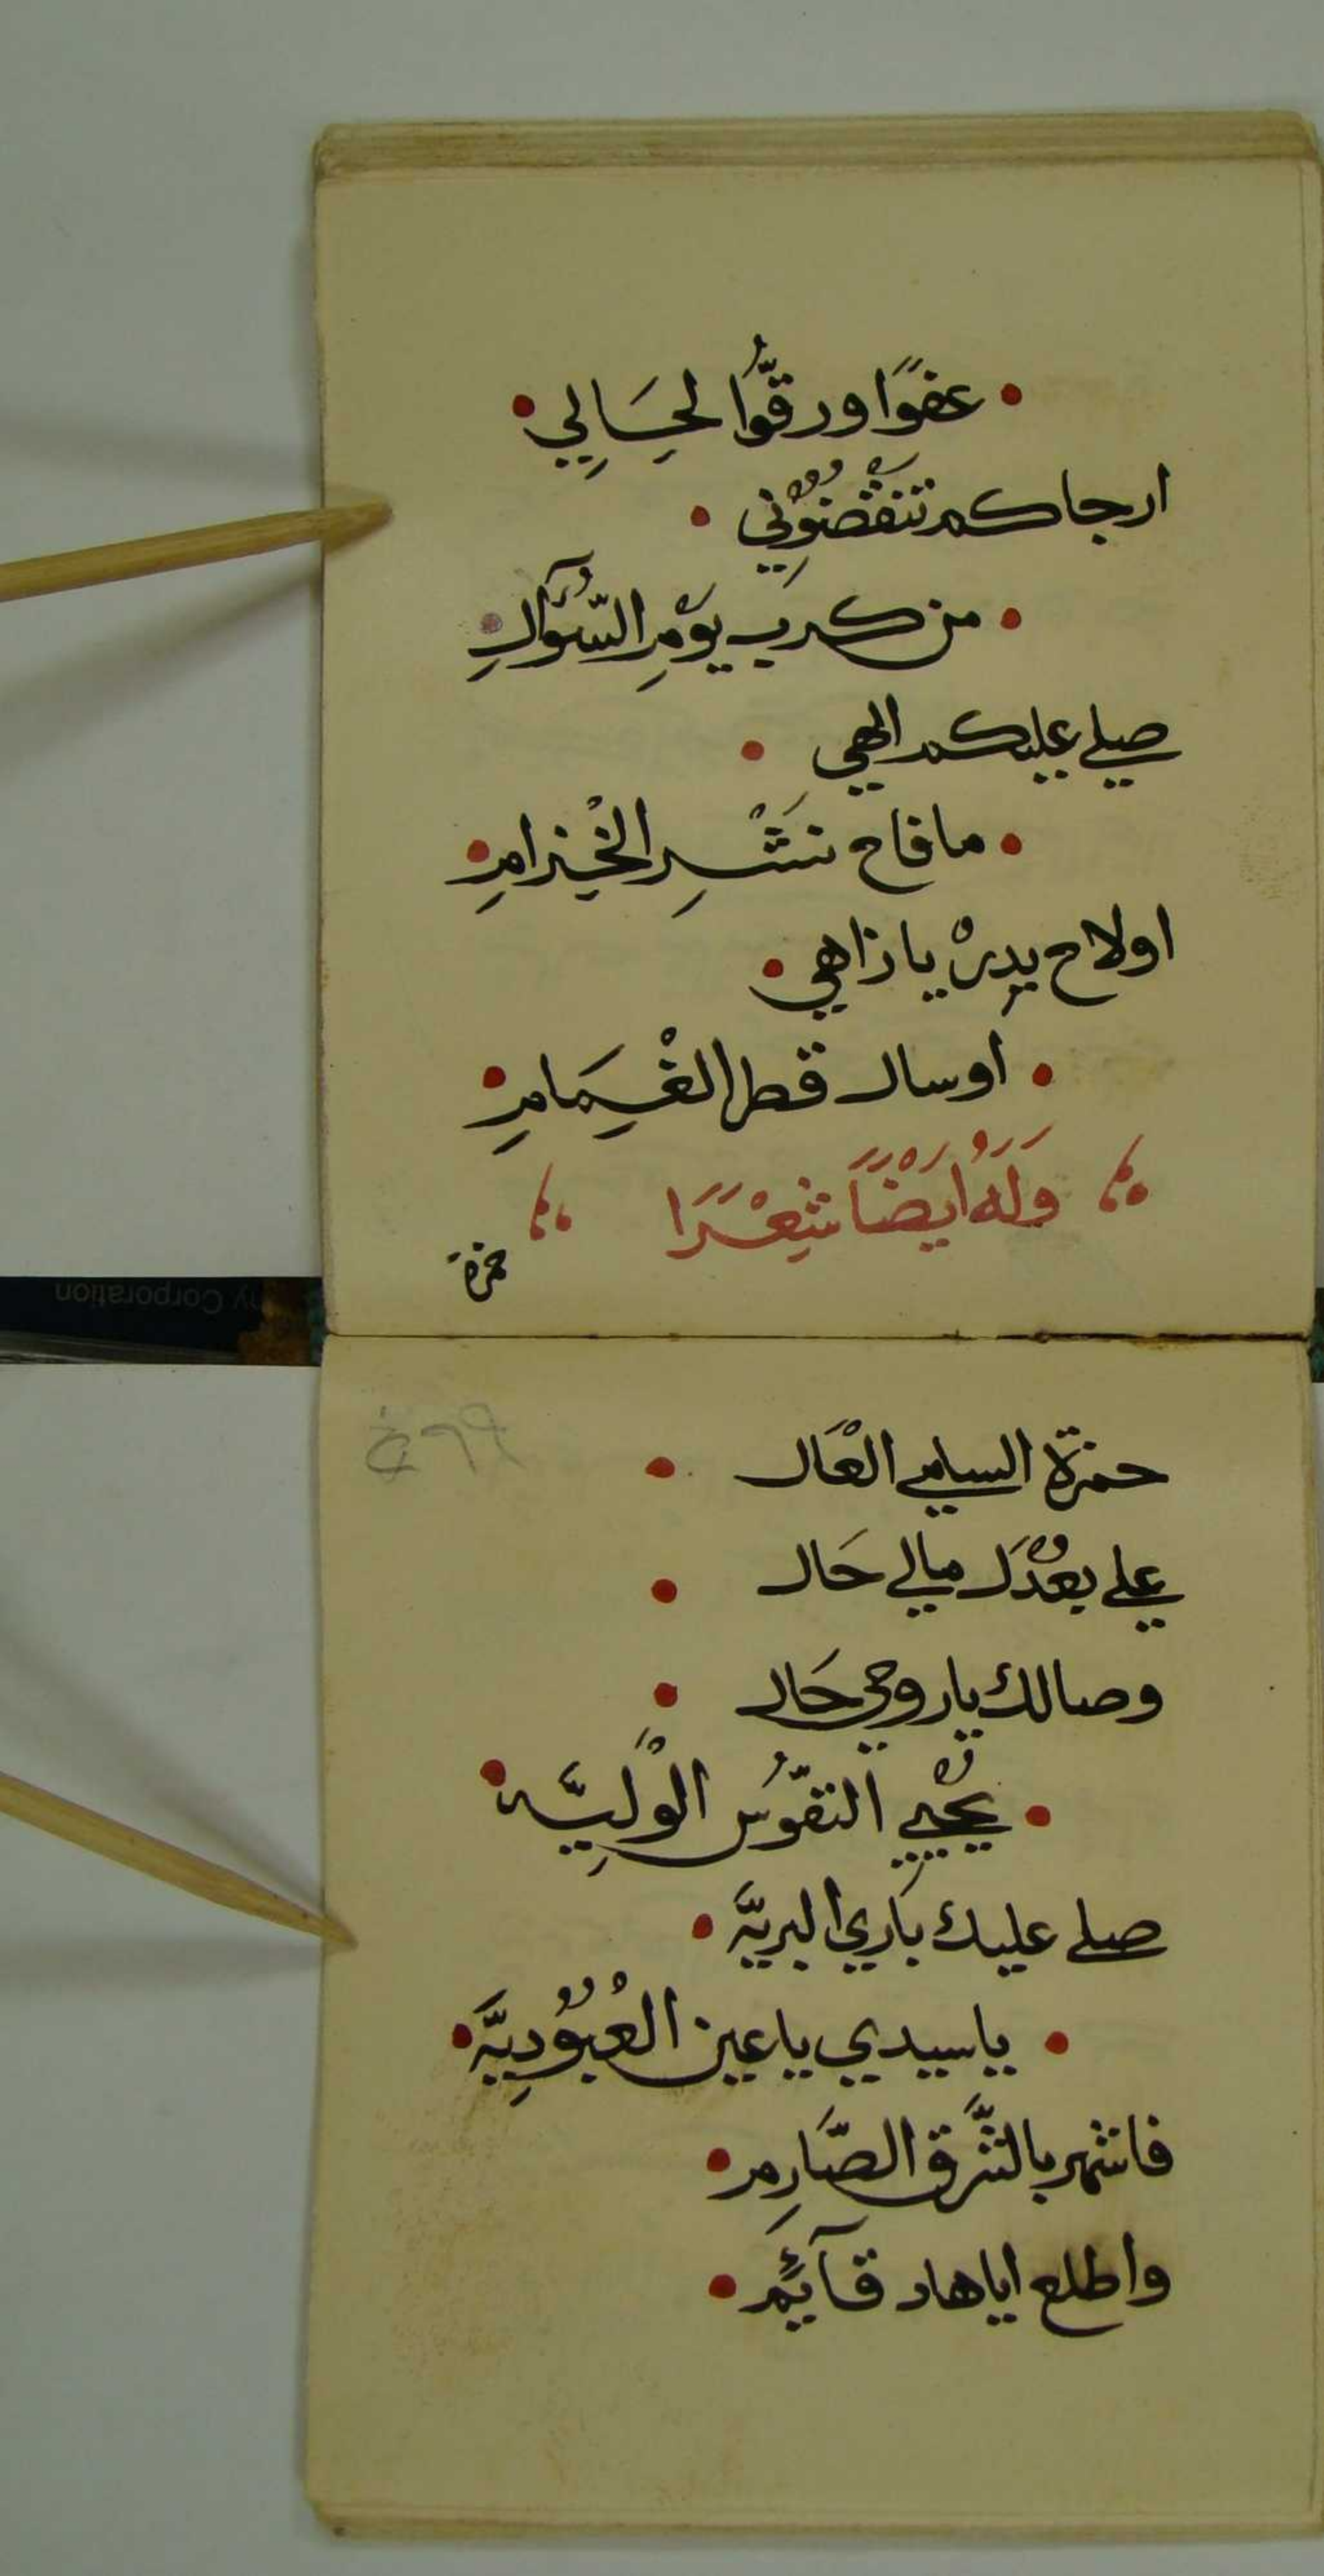 • عفوًا ورقّوُا لحَِالِي •
ارجاكم تنقْضوُنِي •
• من كرب يوْمِ السُّؤآلِ •
صلي عليكم الهي •
• ما فاح نَشْرِ الخْزامِ •
اولاح بدِرْ يا زاهي •
• اوسال قطر الغْمَِامِ •
وَلَهُ اَيْضًا شِعْرًا
حمزة
حمزة السامي العْاَل •
علي بعُدْكَ مالي حَال •
وصالك يا روحي حَال •
• يحُْيِي النفّوُس الْولِيَّه •
صلي عليك باَري البريَّة •
• يا سيدي يا عين العُْبوُدِيَّة •
فاشهر بالشَّرق الصَّارِم •
واطلع اياهاد قآئِم •
ny Corporation